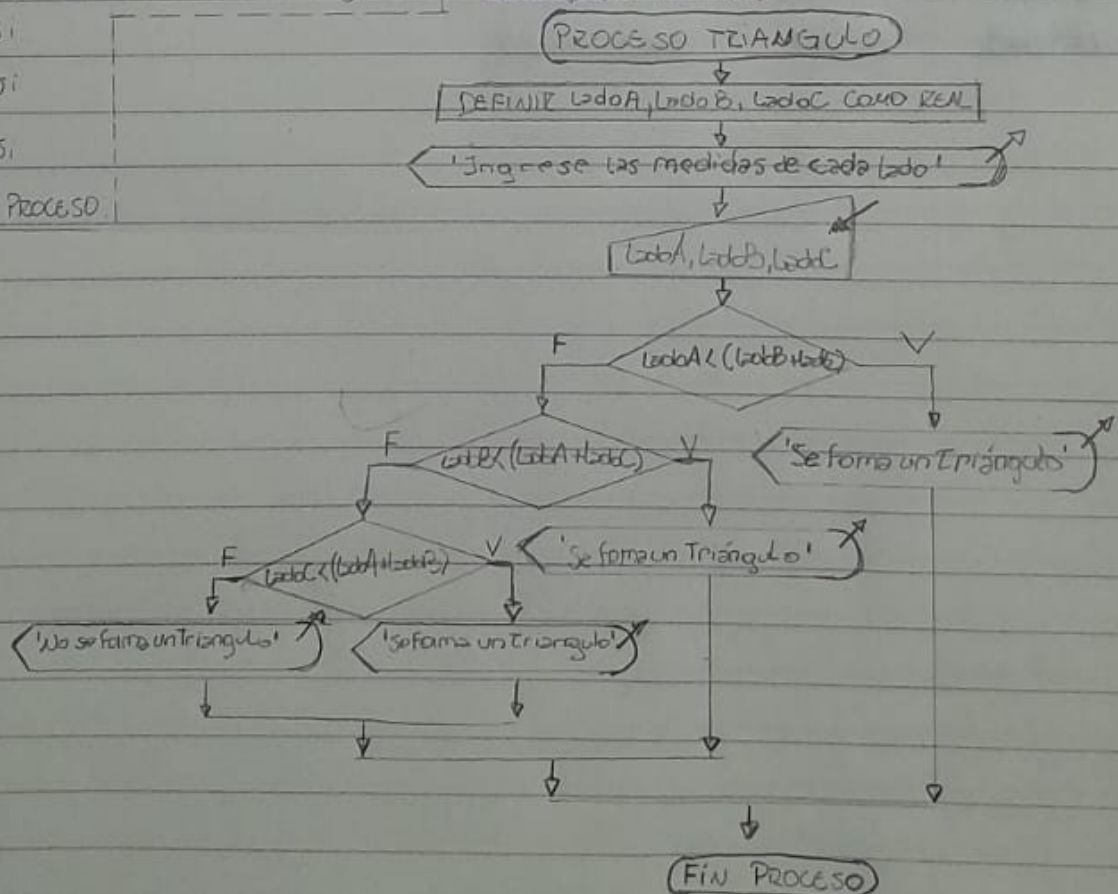 PROCESO TRIANGULO
DEFINIR LadoA, LadoB, LadoC COMO REAL
'Ingrese las medidas de cada lado'
PROCESO
LadoA, LadoB, LadoC
F
LadoA<(LadoB+LadoC)
V
F
LadoB<(LadoA+LadoC)
V
'Se forma un triángulo'
F
LadoC<(LadoA+LadoB)
V
'Se forma un Triángulo'
'No se forma un triangulo'
'Se forma un triangulo'
FIN PROCESO